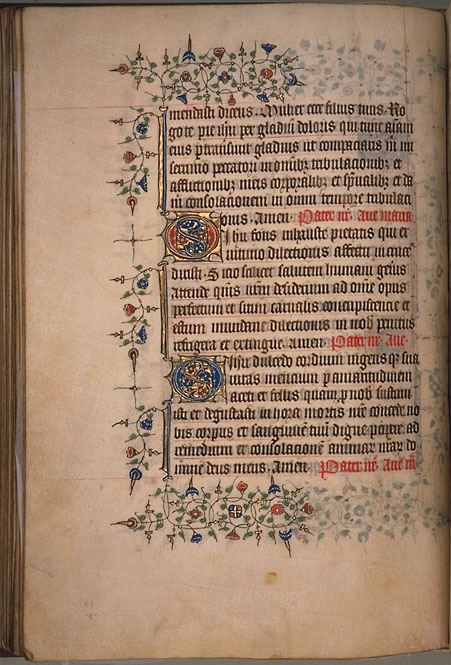 mendasti dicens. Mulier ecce filius tuus. Ro
go te pie ihu per gladiū doloris qui tunc aīam
eius ptransiuit gladius ut compaciaris m̄ mi
serrimo peccatori in omībz tribulacionibz et
afflictionibz meis corporalibz et spūalibz et da
m̄ consolacionem in omni tempore tribulaci
onis. Amen. Pater nr̄. Aue maria
Ihu fons inhauste pietatis qui ex
intimo dilectionis affectu in cruce
dixisti. Sicio scilicet salutem humani genēis
Accende qūs nr̄m desiderium ad omne opus
perfectum et sitim carnalis concupiscencie et
estum mundane dilectionis in nob penitus
refrigera et extingue. Amen. Pater nr̄. Aue.
Ihu dulcedo cordium ingens qꝫ sua
uitas mencium p amaritudinem
aceti et fellis quam p nob sustinu
isti et degustasti in hora mortis nr̄e concede no
bis corpus et sanguinē tuū digne pcipere ad
remedium et consolacionē animar̄ nr̄ar do
mine deus meus. Amen. Pater nr̄. Aue m̄.